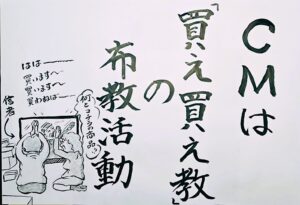 CMは
「買え買え教」
の
布教活動
はは〜
買います〜
買います〜
買わねば〜
何とコチラの商品
信者